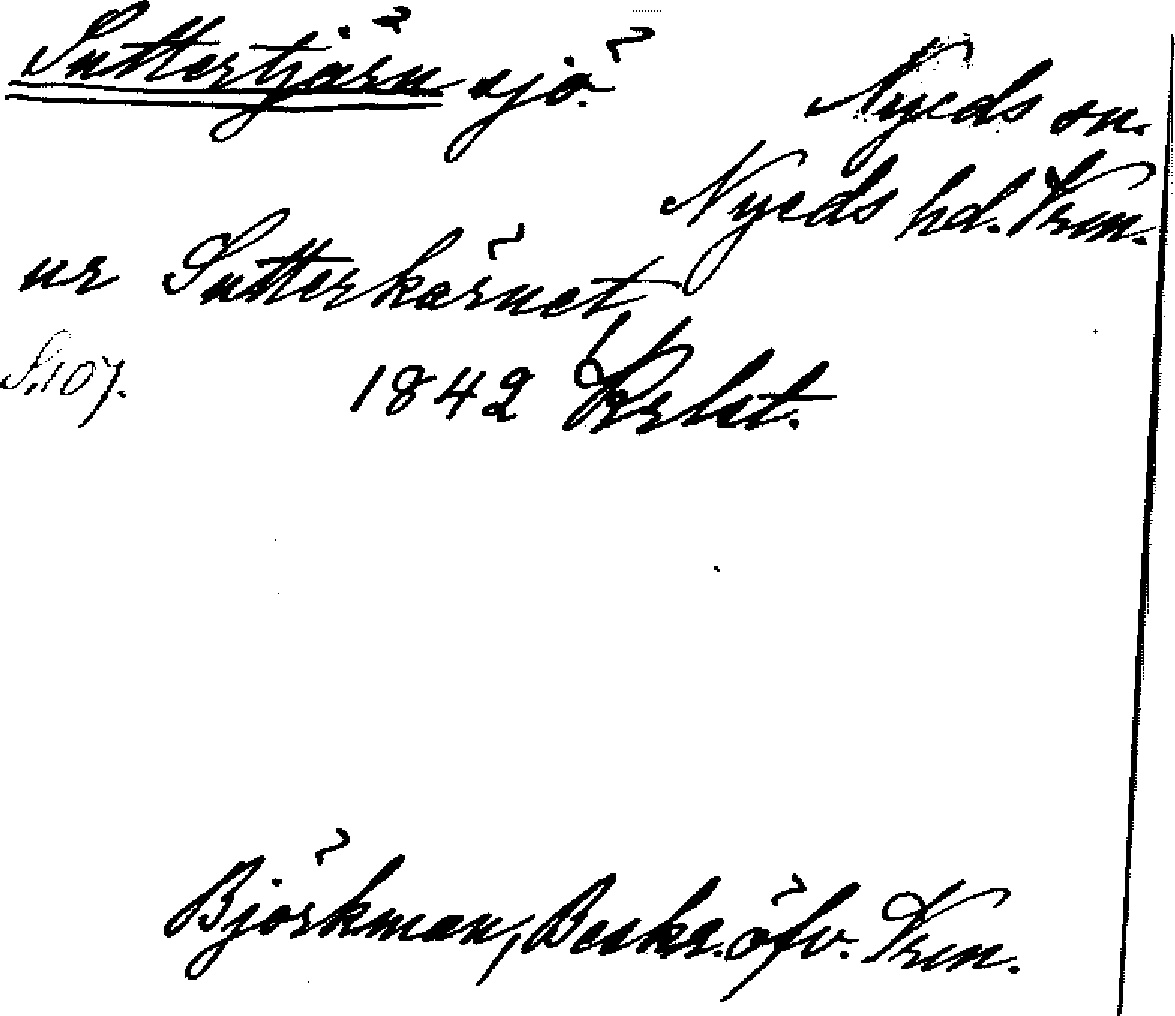 Suttertjärn sjö.
Nyeds sn.
Nyeds hd. Vrm.
ur Sutterkärnet
S. 107. 1842 Krlst.
Björkman, Beskr. öfv. Vrm.